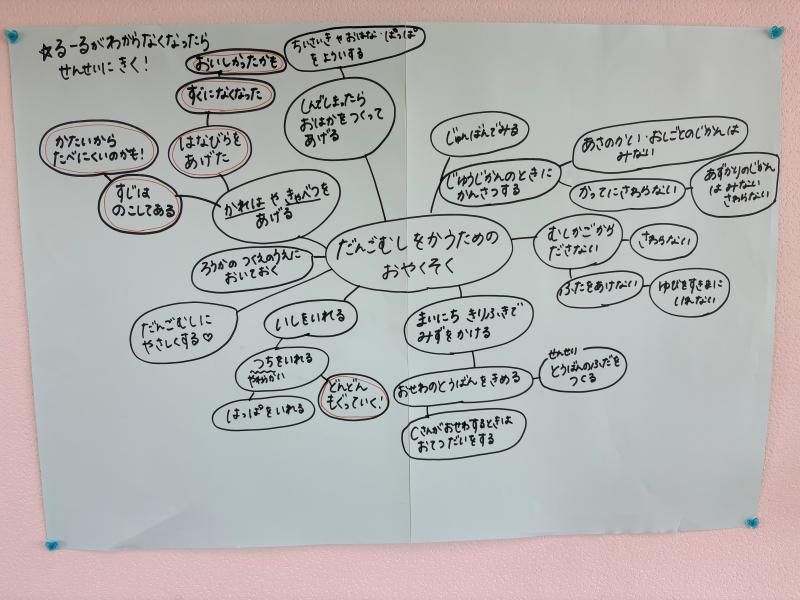 ☆るーるがわからなくなったら
せんせいに きく!
おいしかったかも
すぐになくなった
はなびらを
あげた
かたいから
たべにくいのかも!
すじは
のこしてある
かれは や きゃべつを
あげる
ちいさいき や おはな・はっぱ
を よういする
しんでしまったら
おはかをつくって
あげる
じゅんばんでみる
じゆうじかんのときに
かんさつする
あさのかい・おしごとのじかんは
みない
かってにさわらない
あずかりのじかん
は みない
さわらない
だんごむしをかうための
おやくそく
むしかごから
ださない
さわらない
ふたをあけない
ゆびをすきまに
いれない
ろうかの つくえのうえに
おいておく
だんごむしに
やさしくする♡
いしをいれる
つちをいれる
やわらかい
どんどん
もぐっていく!
はっぱをいれる
まいにち きりふきで
みずをかける
おせわのとうばんをきめる
せんせい
とうばんのふだを
つくる
Cさんがおせわするときは
おてつだいをする